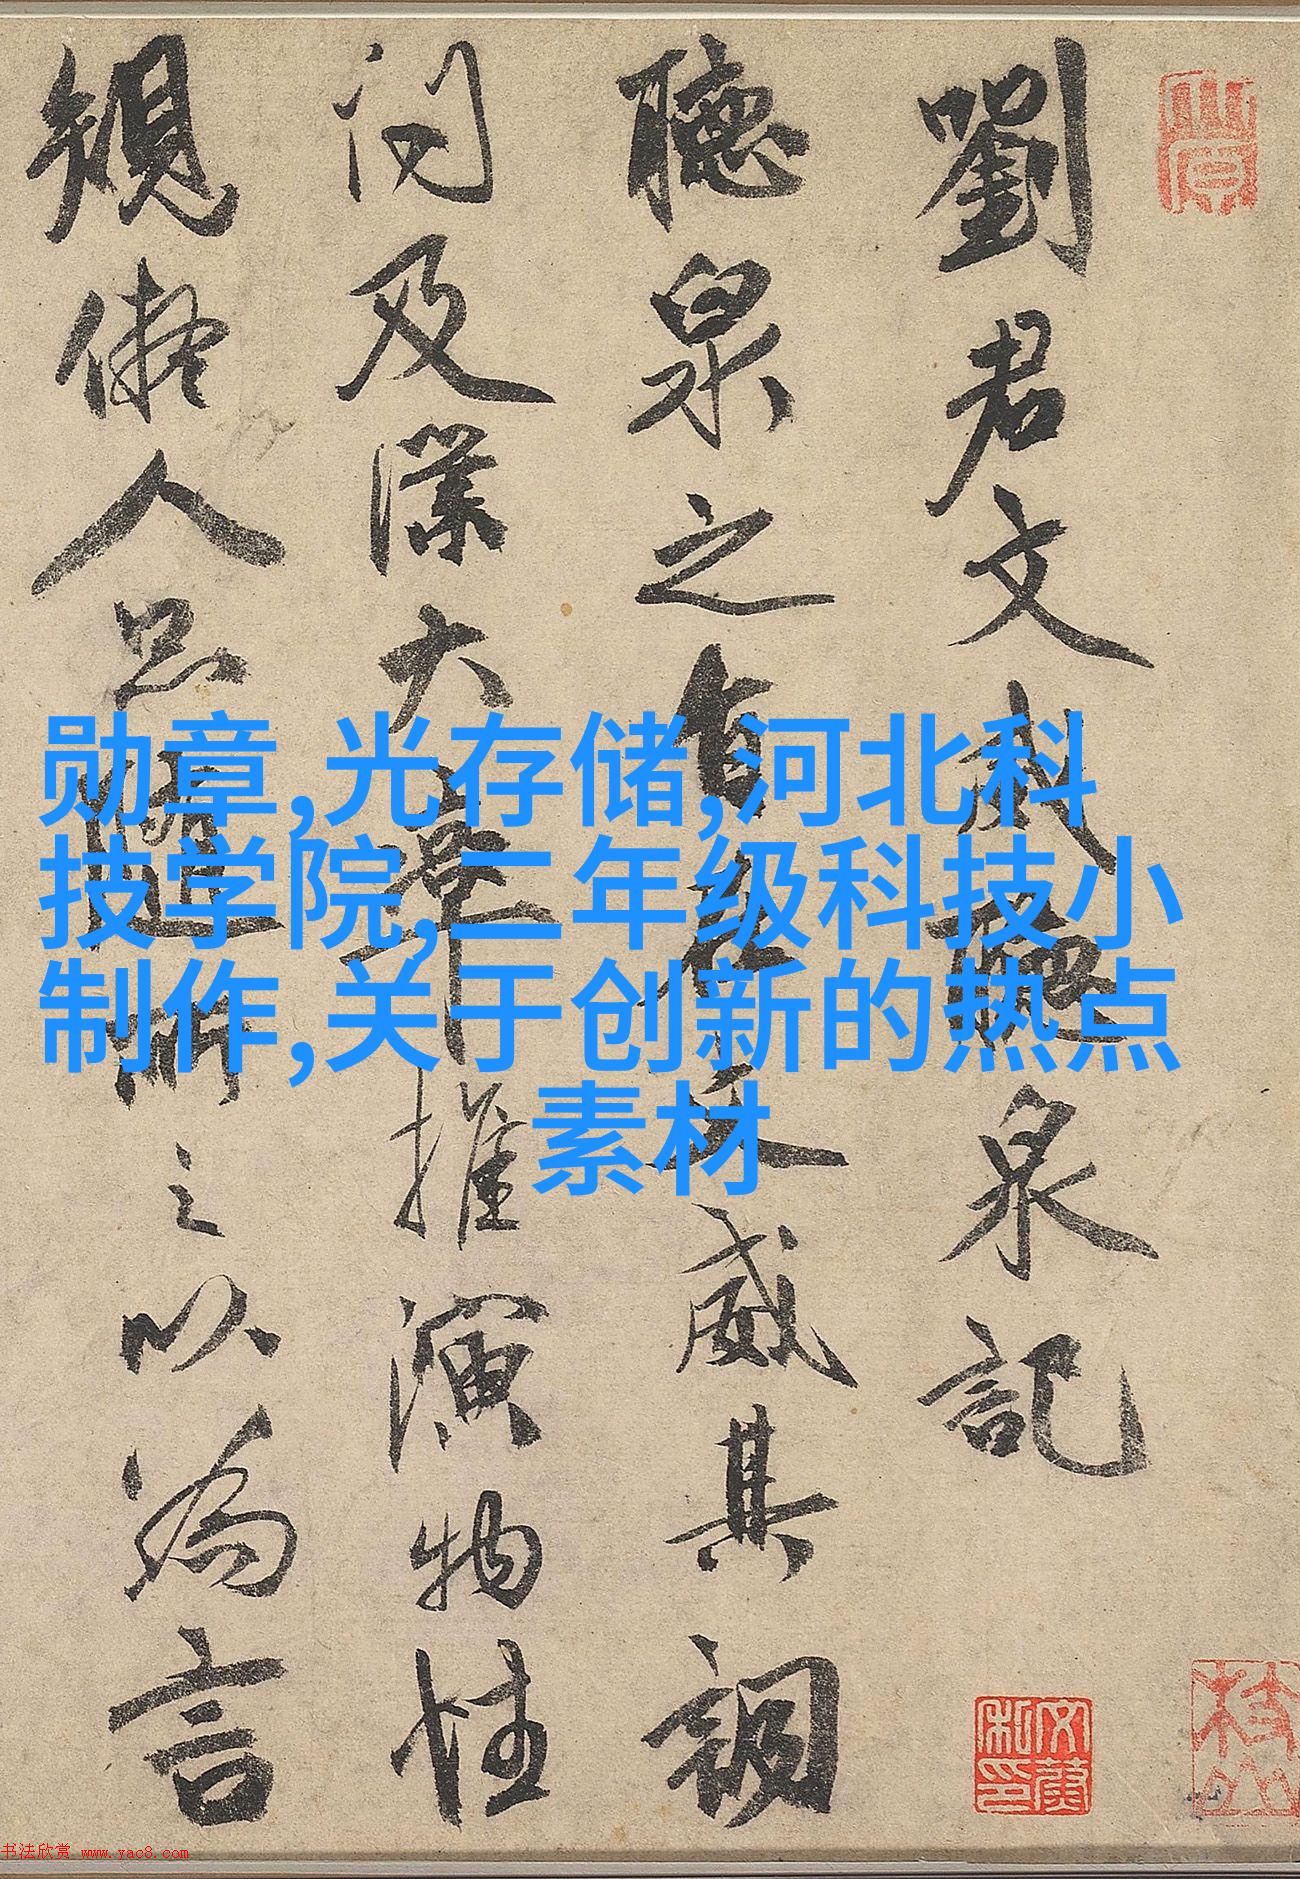 劉君文威聽泉記
聽泉之旨在文威其
及大率推演物性
規儗人品随所之以為言
勋章,光存储,河北科
技学院,二年级科技小
制作,关于创新的热点
素材
书法欣赏 www.yac8.com